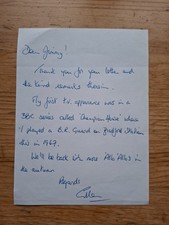 Dear Granny!
Thank you for your letter and
the kind remarks therein.
My first t.v. appearance was in a
BBC series called "Champion House" where
I played a B.R. Guard on Bradford Station
this in 1967.
We'll be back with more Allo Allo's in
the autumn
Regards